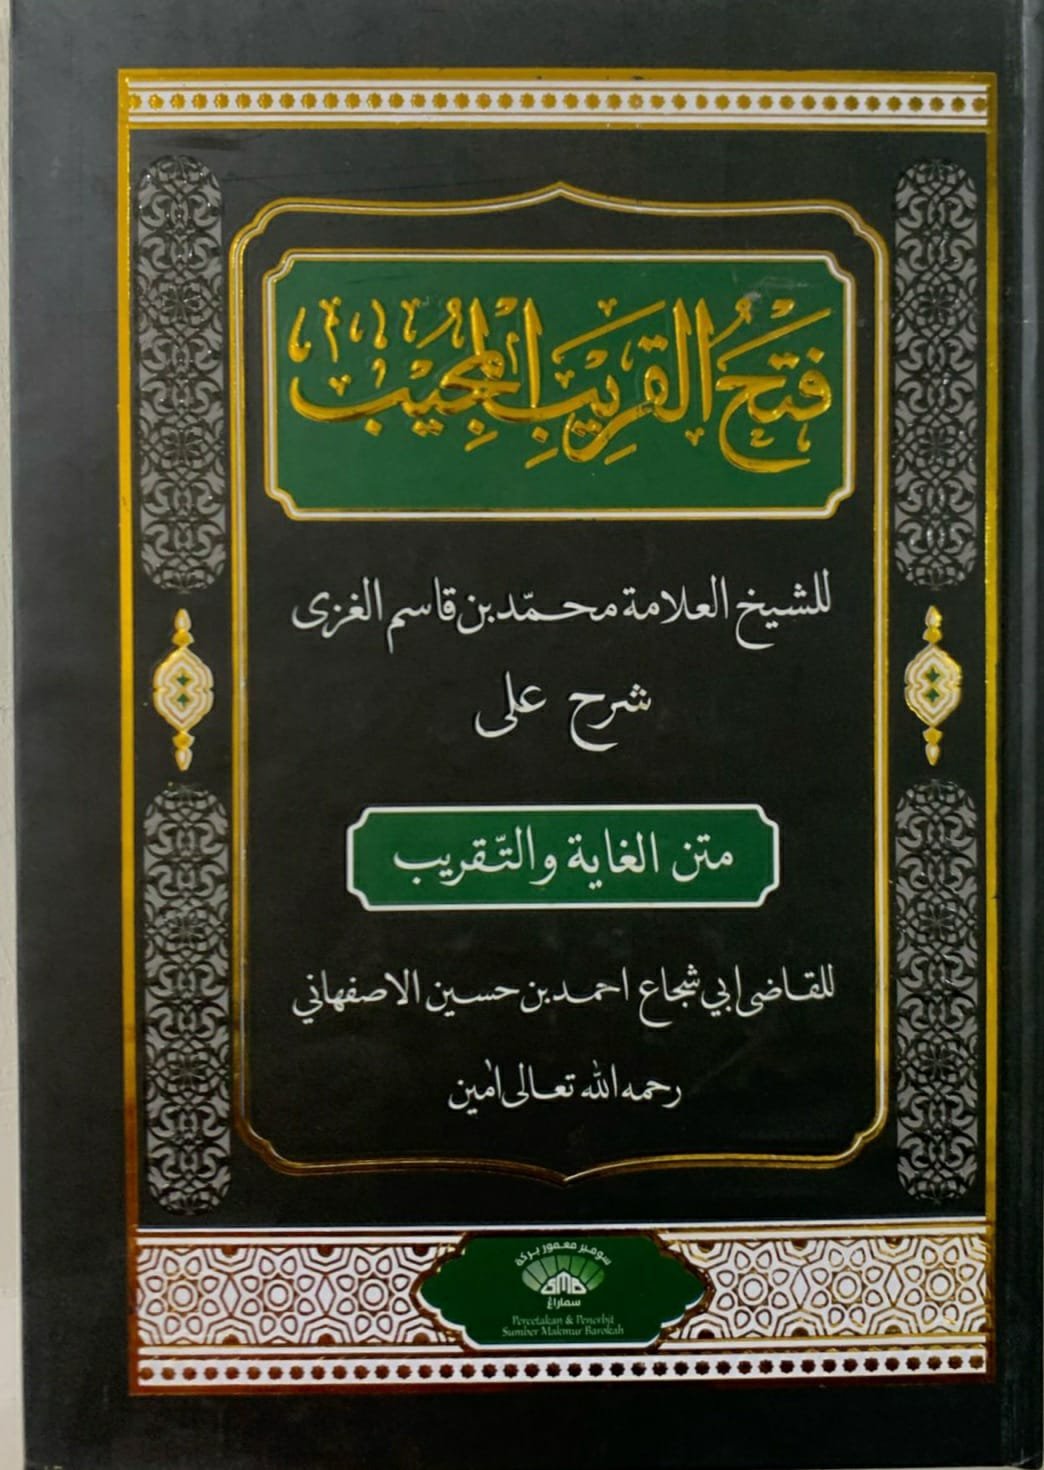 فَتْحُ الْقَرِيْبِ الْمُجِيْبِ
للشيخ العلامة محمّد بن قاسم الغزى
شرح على
متن الغاية والتّقريب
للقاضى ابي شجاع احمد بن حسين الاصفهاني
رحمه الله تعالى امين
سومبر معمور بركة
SMB
سماراڠ
Percetakan & Penerbit
Sumber Makmur Barokah